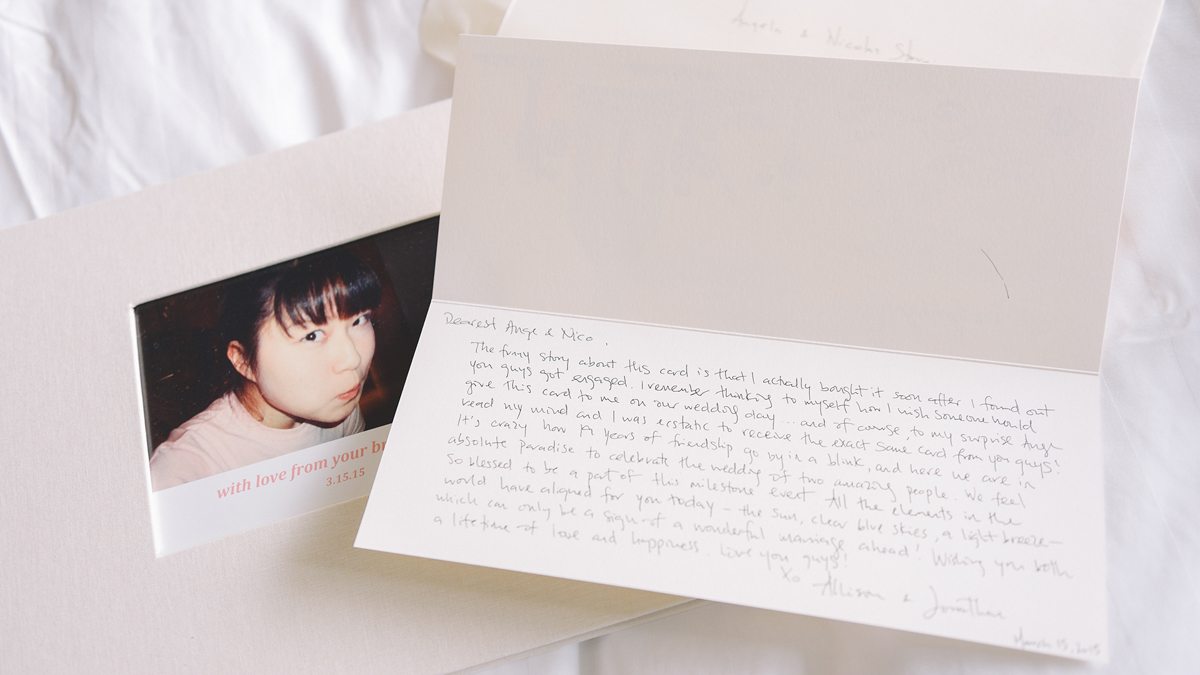 Angela & Nicolas
Dearest Ange & Nico,
The funny story about this card is that I actually bought it soon after I found out
you guys got engaged. I remember thinking to myself how I wish someone would
give this card to me on our wedding day... and of course, to my surprise Ange
read my mind and I was ecstatic to receive the exact same card from you guys!
It's crazy how 19 years of friendship go by in a blink, and here we are in
absolute paradise to celebrate the wedding of two amazing people. We feel
so blessed to be a part of this milestone event. All the elements in the
world have aligned for you today – the sun, clear blue skies, a light breeze –
which can only be a sign of a wonderful marriage ahead! Wishing you both
a lifetime of love and happiness. Love you guys!
Xo Allison & Jonathan
March 15, 2015
with love from your
3.15.15